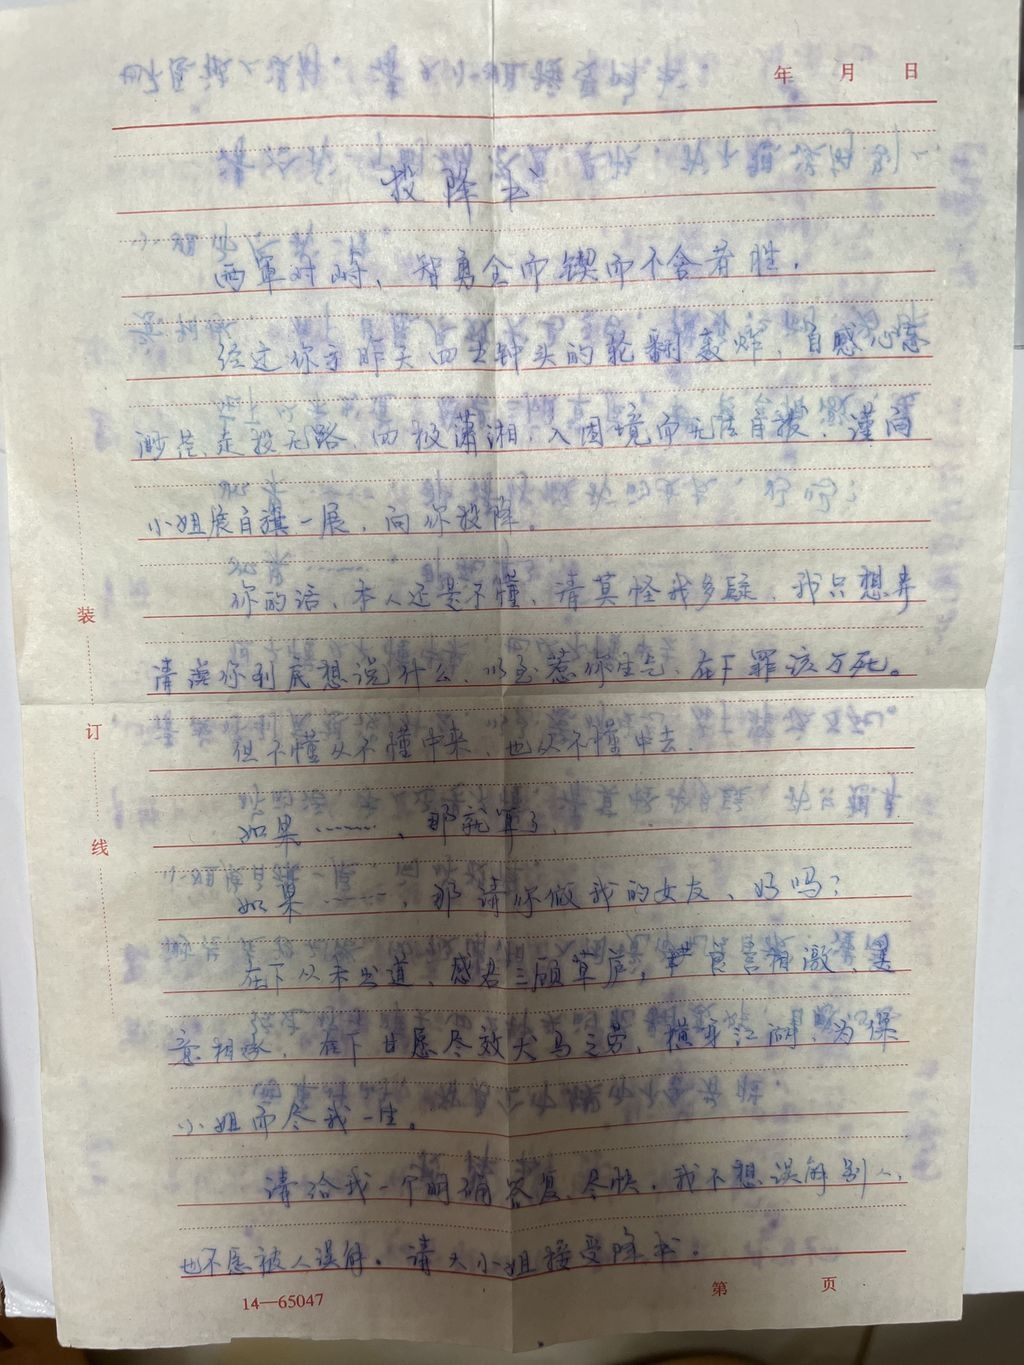 年 月 日
投降书
两軍对峙，智勇全而锲而不舍者胜。
经过你于昨天四 钟头的轮翻轰炸，自感心意
渺茫、走投无路、而极潇湘，入困境而无法自拔，谨向
小姐展白旗一展，向你投降。
你的话，本人还是不懂，请莫怪我多疑，我只想弄
清楚你到底想说什么，以至惹你生气，在下罪该万死。
但不懂从不懂中来，也从不懂中去。
如果……，那就算了，
如果……，那请你做我的女友，好吗？
在下从未出道，感君三顾草庐，
意相 ，在下甘愿尽效犬马之劳，横身江湖，为保
小姐而尽我一生。
请给我一个明确答复，尽快，我不想误解别人，
也不愿被人误解。请大小姐接受降书。
装
订
线
14—65047
第 页